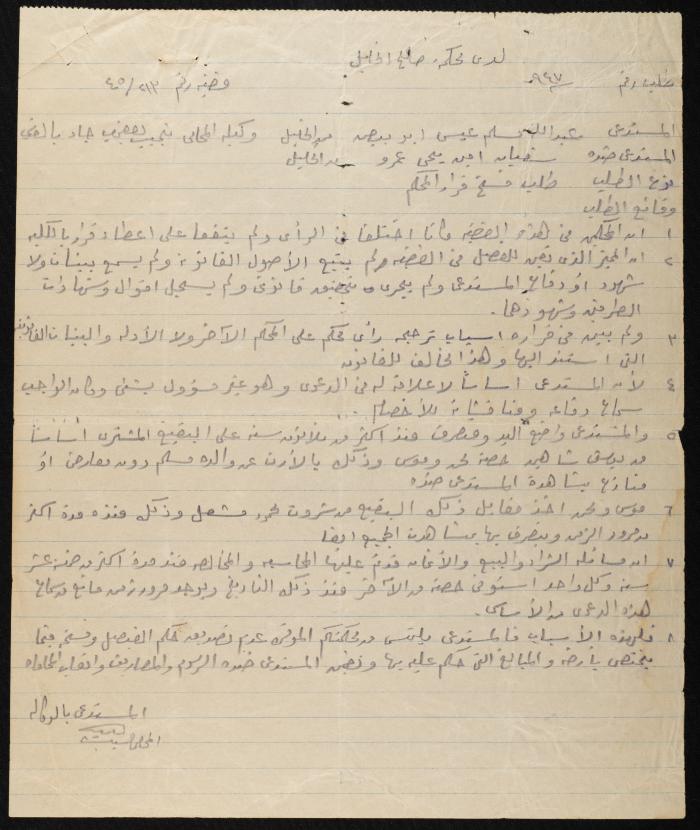 لدى محكمة صلح الخليل
طلب رقم ٩٤٧ قضية رقم ٢١٣/٤٥
المستدعي عبد الله مسلم عيسى ابو من الخليل وكيله المحامي نجيب
المستدعى ضده سفيان امين يحيى عمرو من الخليل
نوع الطلب طلب فسخ قرار الحكم
وقائع الطلب
١ ان المحكمين في هذه القضية كانا اختلفا في الرأي ولم يتفقا على اعطاء قرار بالكلية
٢ ان المميز الذي تعين للفصل في القضية لم يتبع الأصول القانونية ولم يسمع بينات ولا
شهود او دفاع المستدعي ولم يجري تحقيق قانوني ولم يسجل اقوال وشهادات
الطرفين وشهودها.
٣ ولم يبين في قراره اسباب ترجيح رأي محكم على المحكم الآخر ولا الأدلة والبينات القانونية
التي استند اليها وهذا مخالف للقانون
٤ لأن المستدعي اساساً لا علاقة له في الدعوى وهو غير مسؤول بشئ وكان الواجب
سماع دفاعه ومناقشاته للأخصام ...
٥ والمستدعي واضع اليد ومتصرف منذ اكثر من ثلاثون سنة على البقيع المشترى اساساً
من يوسف شاهين حصة محمد وموسى وذلك بالأرث عن والده مسلم دون معارض او
منازع بمشاهدة المستدعى ضده
٦ موسى ومحمد اخذ مقابل ذلك البقيع من مشعل وذلك منذ مدة اكثر
من مرور الزمن ومتصرف بها بمشاهدة الجميع ايضا
٧ ان مسألة الشراء والبيع والأثمان قد تم عليها المحاسبه والمخالصه منذ مدة اكثر من خمسة عشر
سنة وكل واحد استوفى حصته من الآخر منذ ذلك التاريخ ويوجد مرور زمن مانع من سماع
هذه الدعوى من الأساس.
٨ فلهذه الأسباب فالمستدعي يلتمس من محكمتكم الموقرة عدم تصديق حكم الفيصل وفسخه فيما
يختص بأرضه والمبالغ التي حكم عليه بها وتضمين المستدعى ضده الرسوم والمصاريف واتعاب المحاماه
المستدعي بالوكاله
المحامي